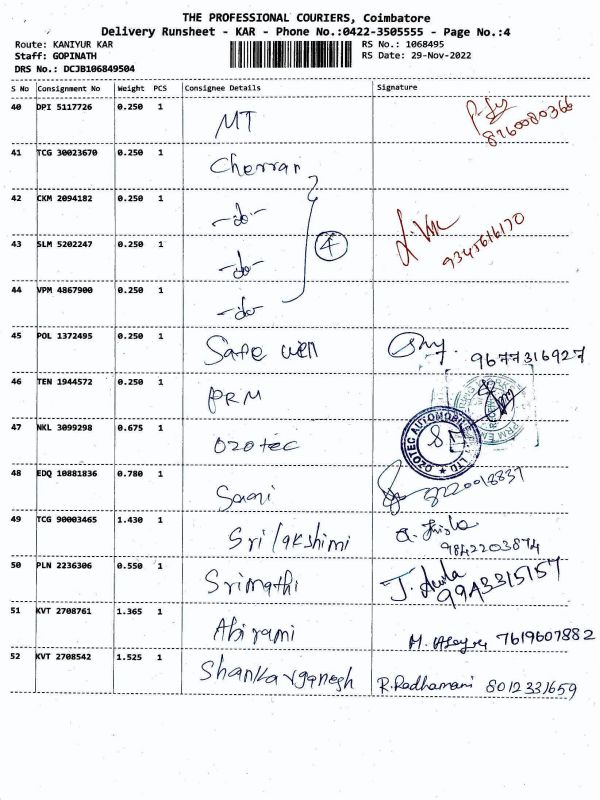 THE PROFESSIONAL COURIERS, Coimbatore
Delivery Runsheet - KAR - Phone No.:0422-3505555 - Page No.:4
Route: KANIYUR KAR RS No.: 1068495
Staff: GOPINATH RS Date: 29-Nov-2022
DRS No.: DCJB106849504
S No Consignment No Weight PCS Consignee Details Signature
40 DPI 5117726 0.250 1 MT 8760080366
41 TCG 30023670 0.250 1 Cherran
42 CKM 2094182 0.250 1 -do-
43 SLM 5202247 0.250 1 -do- 4 9345616170
44 VPM 4867900 0.250 1 -do-
45 POL 1372495 0.250 1 Safe well 9677316927
46 TEN 1944572 0.250 1 PRM
47 NKL 3099298 0.675 1 Ozotec OZOTEC AUTOMOBILE LTD
48 EDQ 10881836 0.780 1 8220018837
49 TCG 90003465 1.430 1 Sri lakshimi 9842203874
50 PLN 2236306 0.550 1 Srimathi 9943315157
51 KVT 2708761 1.365 1 Abirami 7619607882
52 KVT 2708542 1.525 1 Shankarganesh R. Radhamani 8012331659